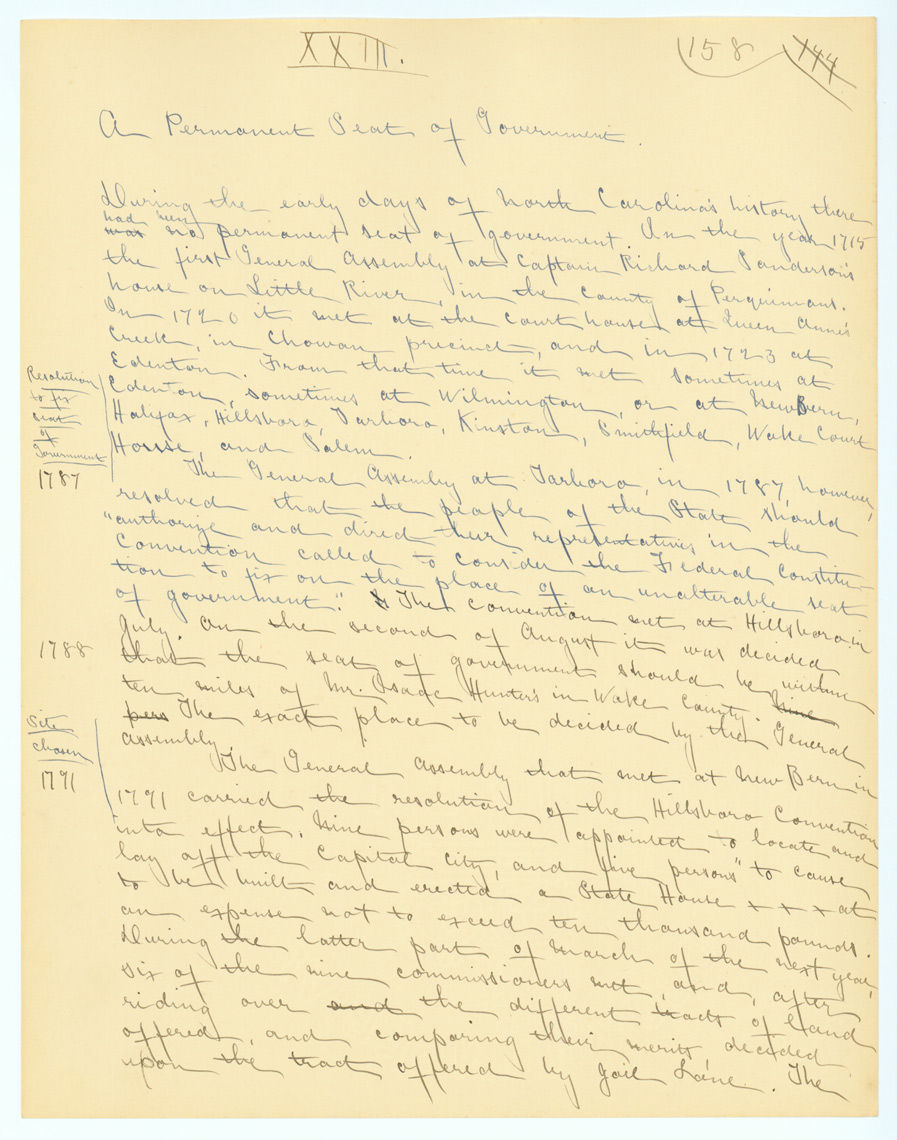 XXIII.
158 144
A Permanent Seat of Government.
During the early days of North Carolina's history there
had been
was no permanent seat of government. In the year 1715
the first General Assembly at Captain Richard Sanderson's
house on Little River, in the county of Perquimans.
In 1720 it met at the court house at Queen Anne's
Creek, in Chowan precinct, and in 1723 at
Edenton. From that time it met sometimes at
Edenton, sometimes at Wilmington, or at New Bern,
Halifax, Hillsboro, Tarboro, Kinston, Smithfield, Wake Court
House, and Salem.
Resolution
to fix
seat
of
Government
1787
The General Assembly at Tarboro, in 1787, however,
resolved that the people of the State should
"authorize and direct their representatives in the
Convention called to consider the Federal Constitu-
tion to fix on the place of an unalterable seat
of government." The convention met at Hillsboro in
July. On the second of August it was decided
1788
that the seat of government should be within
ten miles of Mr. Isaac Hunter's in Wake County. Nine
pers The exact place to be decided by the General
Assembly.
Site
chosen
1791
The General Assembly that met at New Bern in
1791 carried the resolution of the Hillsboro Convention
into effect. Nine persons were appointed to locate and
lay off the capital city, and five persons "to cause
to be built and erected a State House x x x at
an expense not to exceed ten thousand pounds.
During the latter part of March of the next year,
six of the nine commissioners met, and, after
riding over and the different tracts of land
offered, and comparing their merits, decided
upon the tract offered by Joel Lane. The